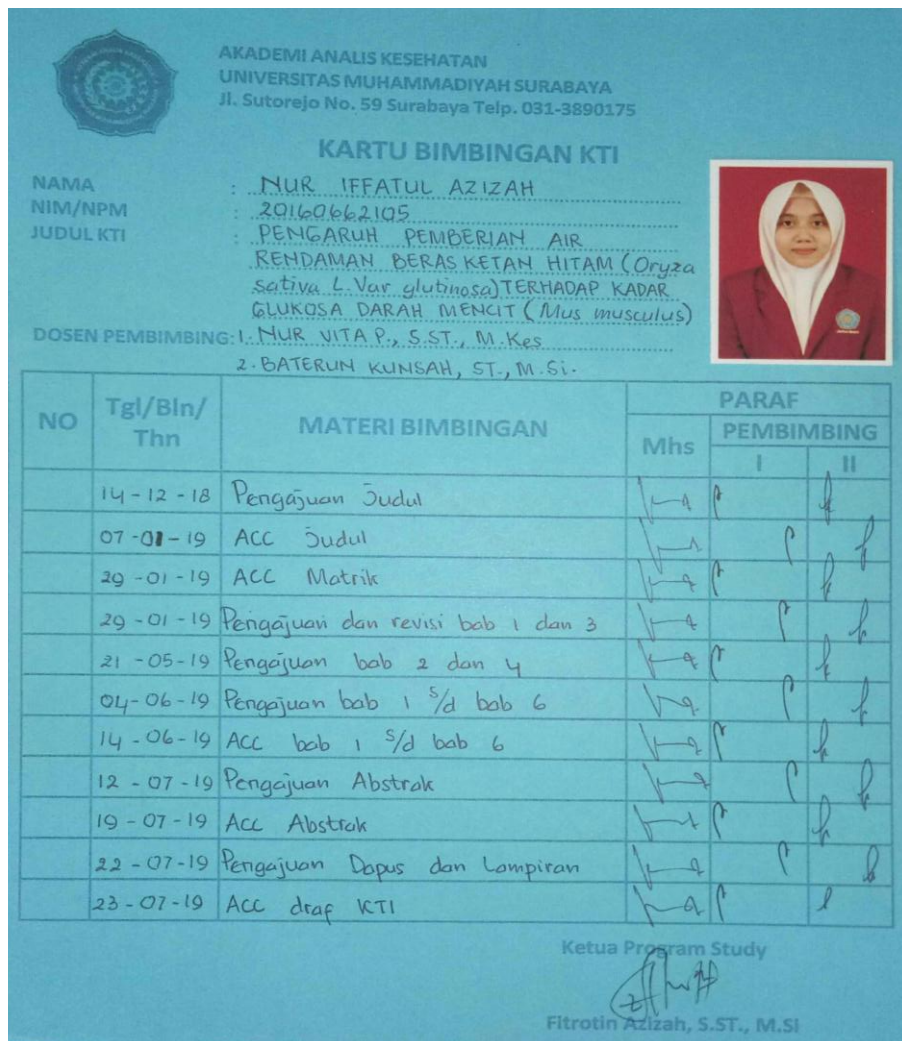 AKADEMI ANALIS KESEHATAN
UNIVERSITAS MUHAMMADIYAH SURABAYA
Jl. Sutorejo No. 59 Surabaya Telp. 031-3890175
KARTU BIMBINGAN KTI
NAMA : NUR IFFATUL AZIZAH
NIM/NPM : 20160662105
JUDUL KTI : PENGARUH PEMBERIAN AIR
RENDAMAN BERAS KETAN HITAM (Oryza
sativa L. Var glutinosa) TERHADAP KADAR
GLUKOSA DARAH MENCIT (Mus musculus)
DOSEN PEMBIMBING: 1. NUR VITA P., S.ST., M.Kes
2. BATERUN KUNSAH, ST., M.Si.
NO Tgl/Bln/Thn MATERI BIMBINGAN PARAF
Mhs PEMBIMBING
I II
14-12-18 Pengajuan Judul
07-01-19 ACC Judul
29-01-19 ACC Matrik
29-01-19 Pengajuan dan revisi bab 1 dan 3
21-05-19 Pengajuan bab 2 dan 4
04-06-19 Pengajuan bab 1 s/d bab 6
14-06-19 ACC bab 1 s/d bab 6
12-07-19 Pengajuan Abstrak
19-07-19 Acc Abstrak
22-07-19 Pengajuan Dapus dan Lampiran
23-07-19 ACC draf KTI
Ketua Program Study
Fitrotin Azizah, S.ST., M.Si